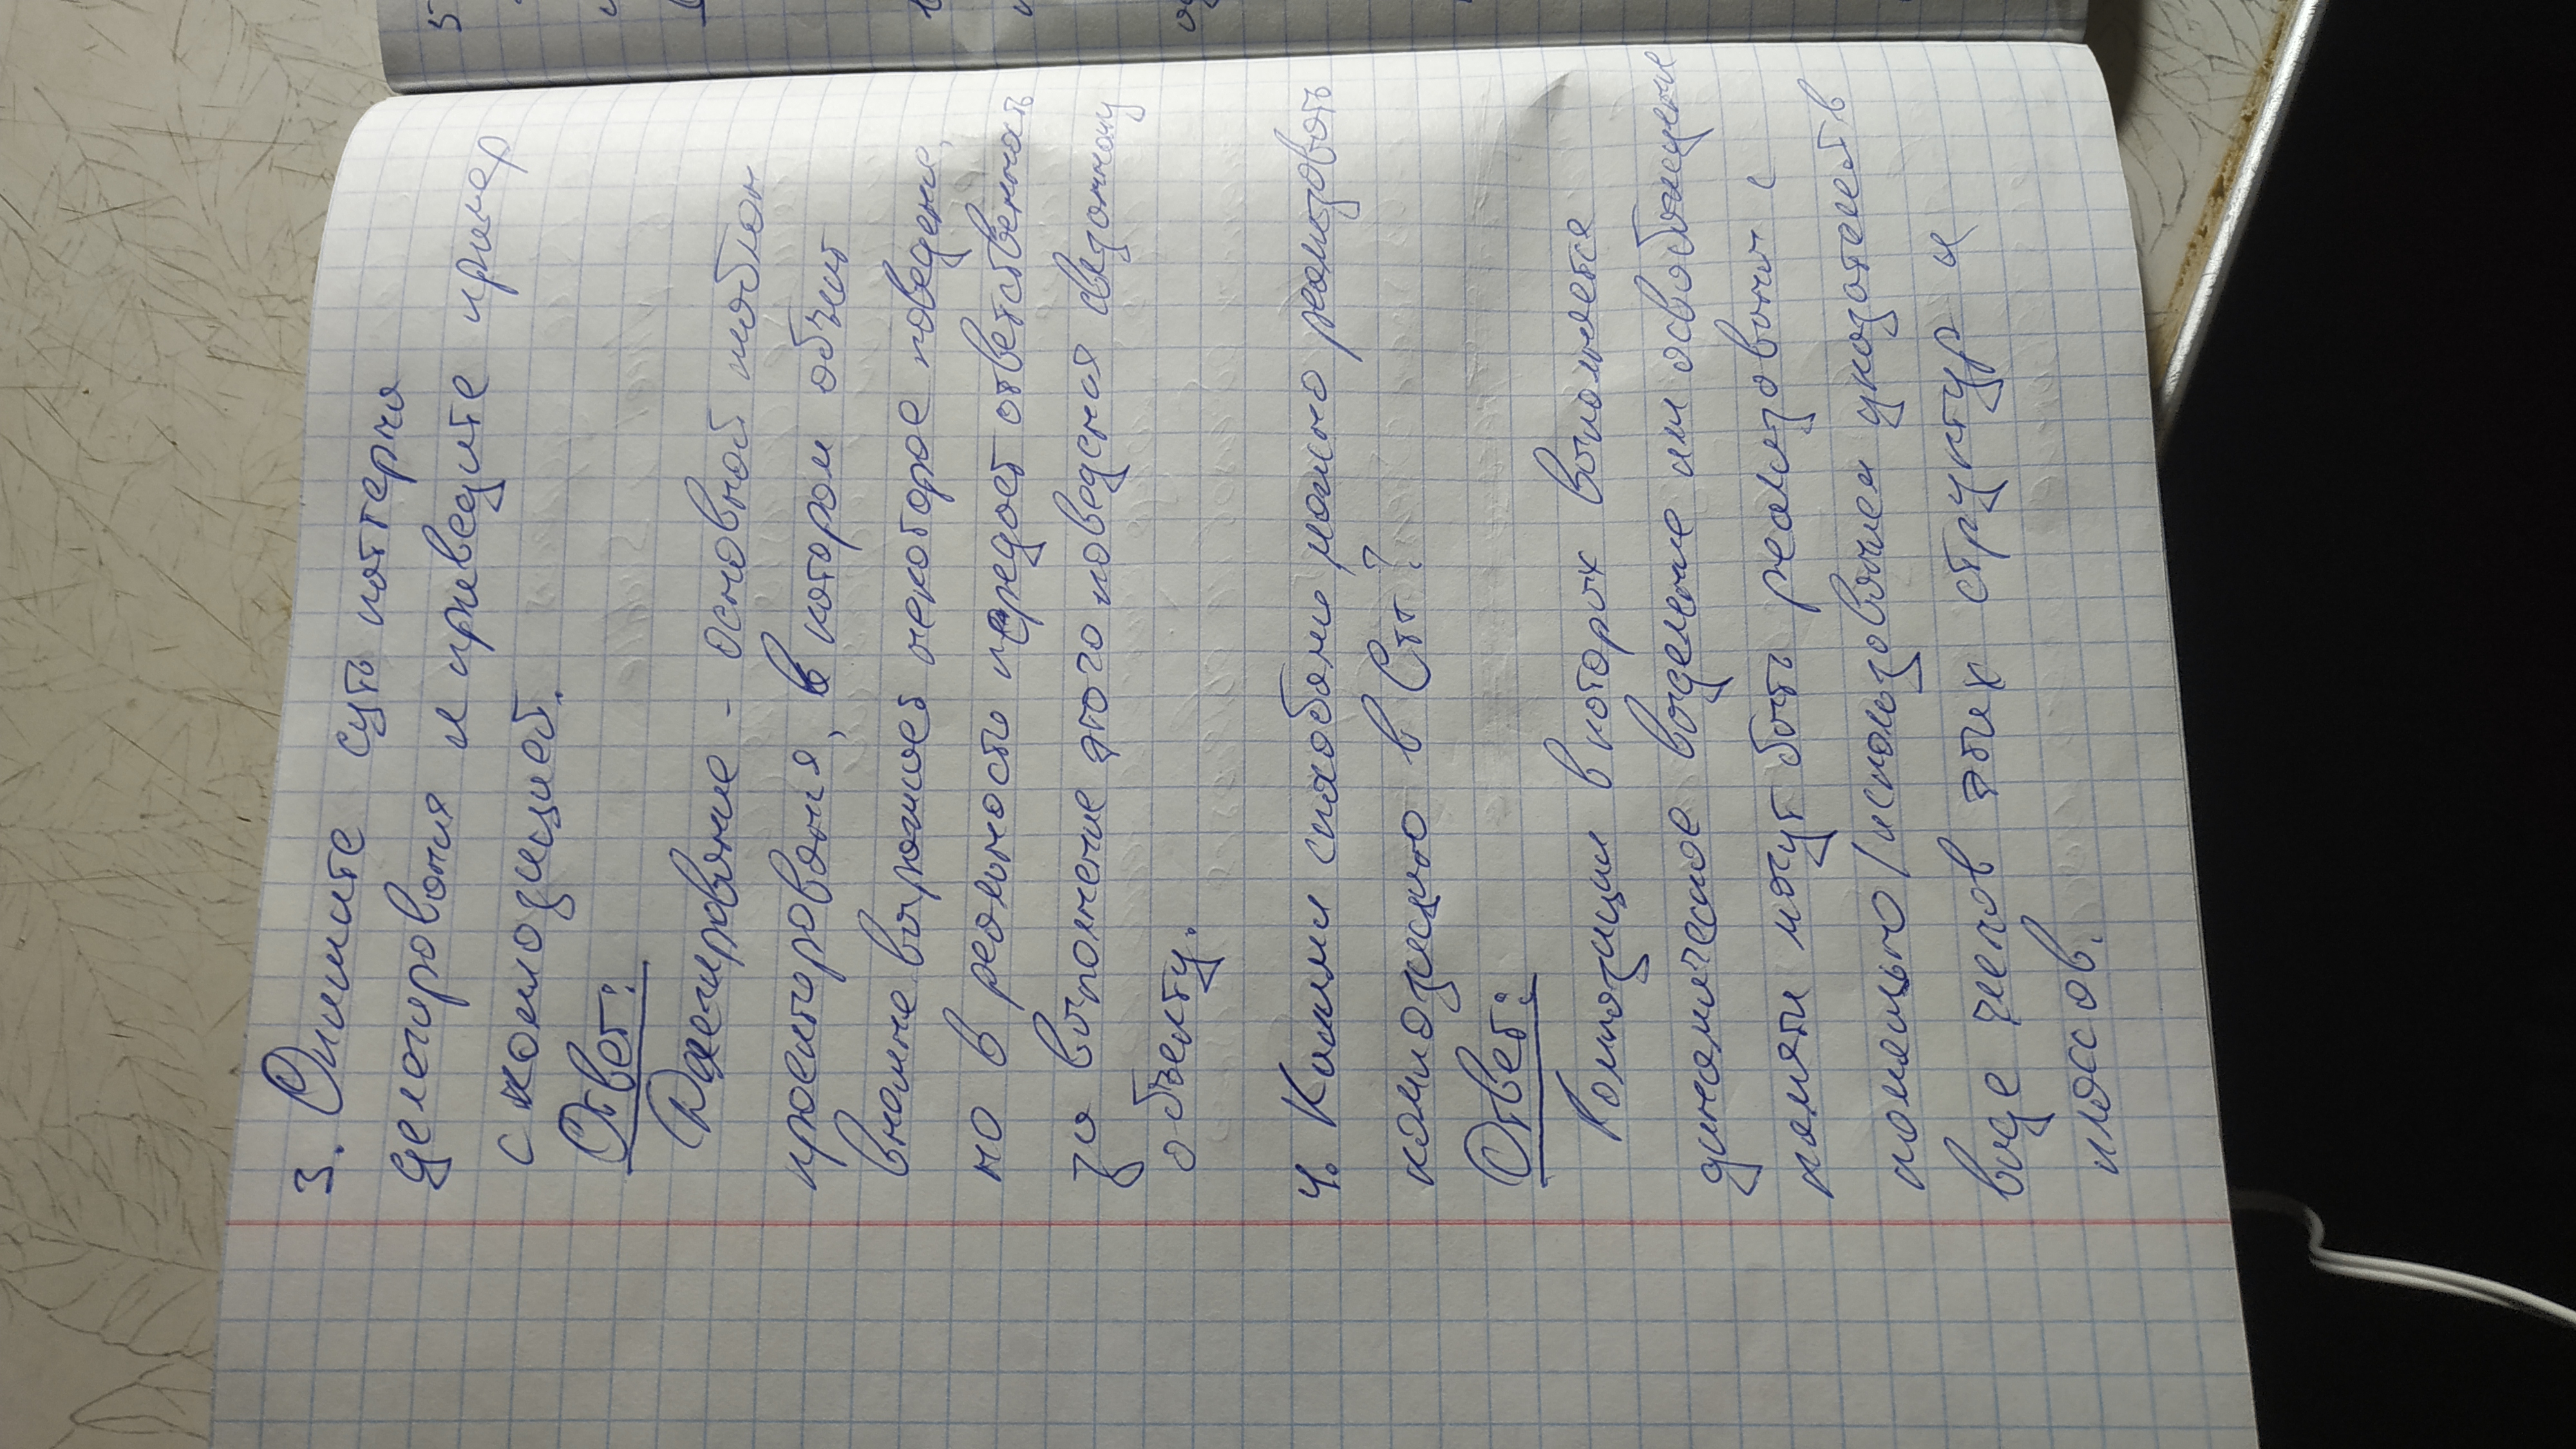 3. Опишите суть паттерна
делегирования и приведите пример
с композицией.
Ответ:
Делегирование - основной шаблон
проектирования, в котором объект
внешне выражает некоторое поведение,
но в реальности передает ответственность
за выполнение этого поведения связанному
объекту.
4. Какими способами можно реализовать
композицию в C++?
Ответ:
Композиции в которых выполняется
динамическое выделение или освобождение
памяти могут быть реализованы с
помощью/использованием указателей в
виде членов этих структур и
классов.
5